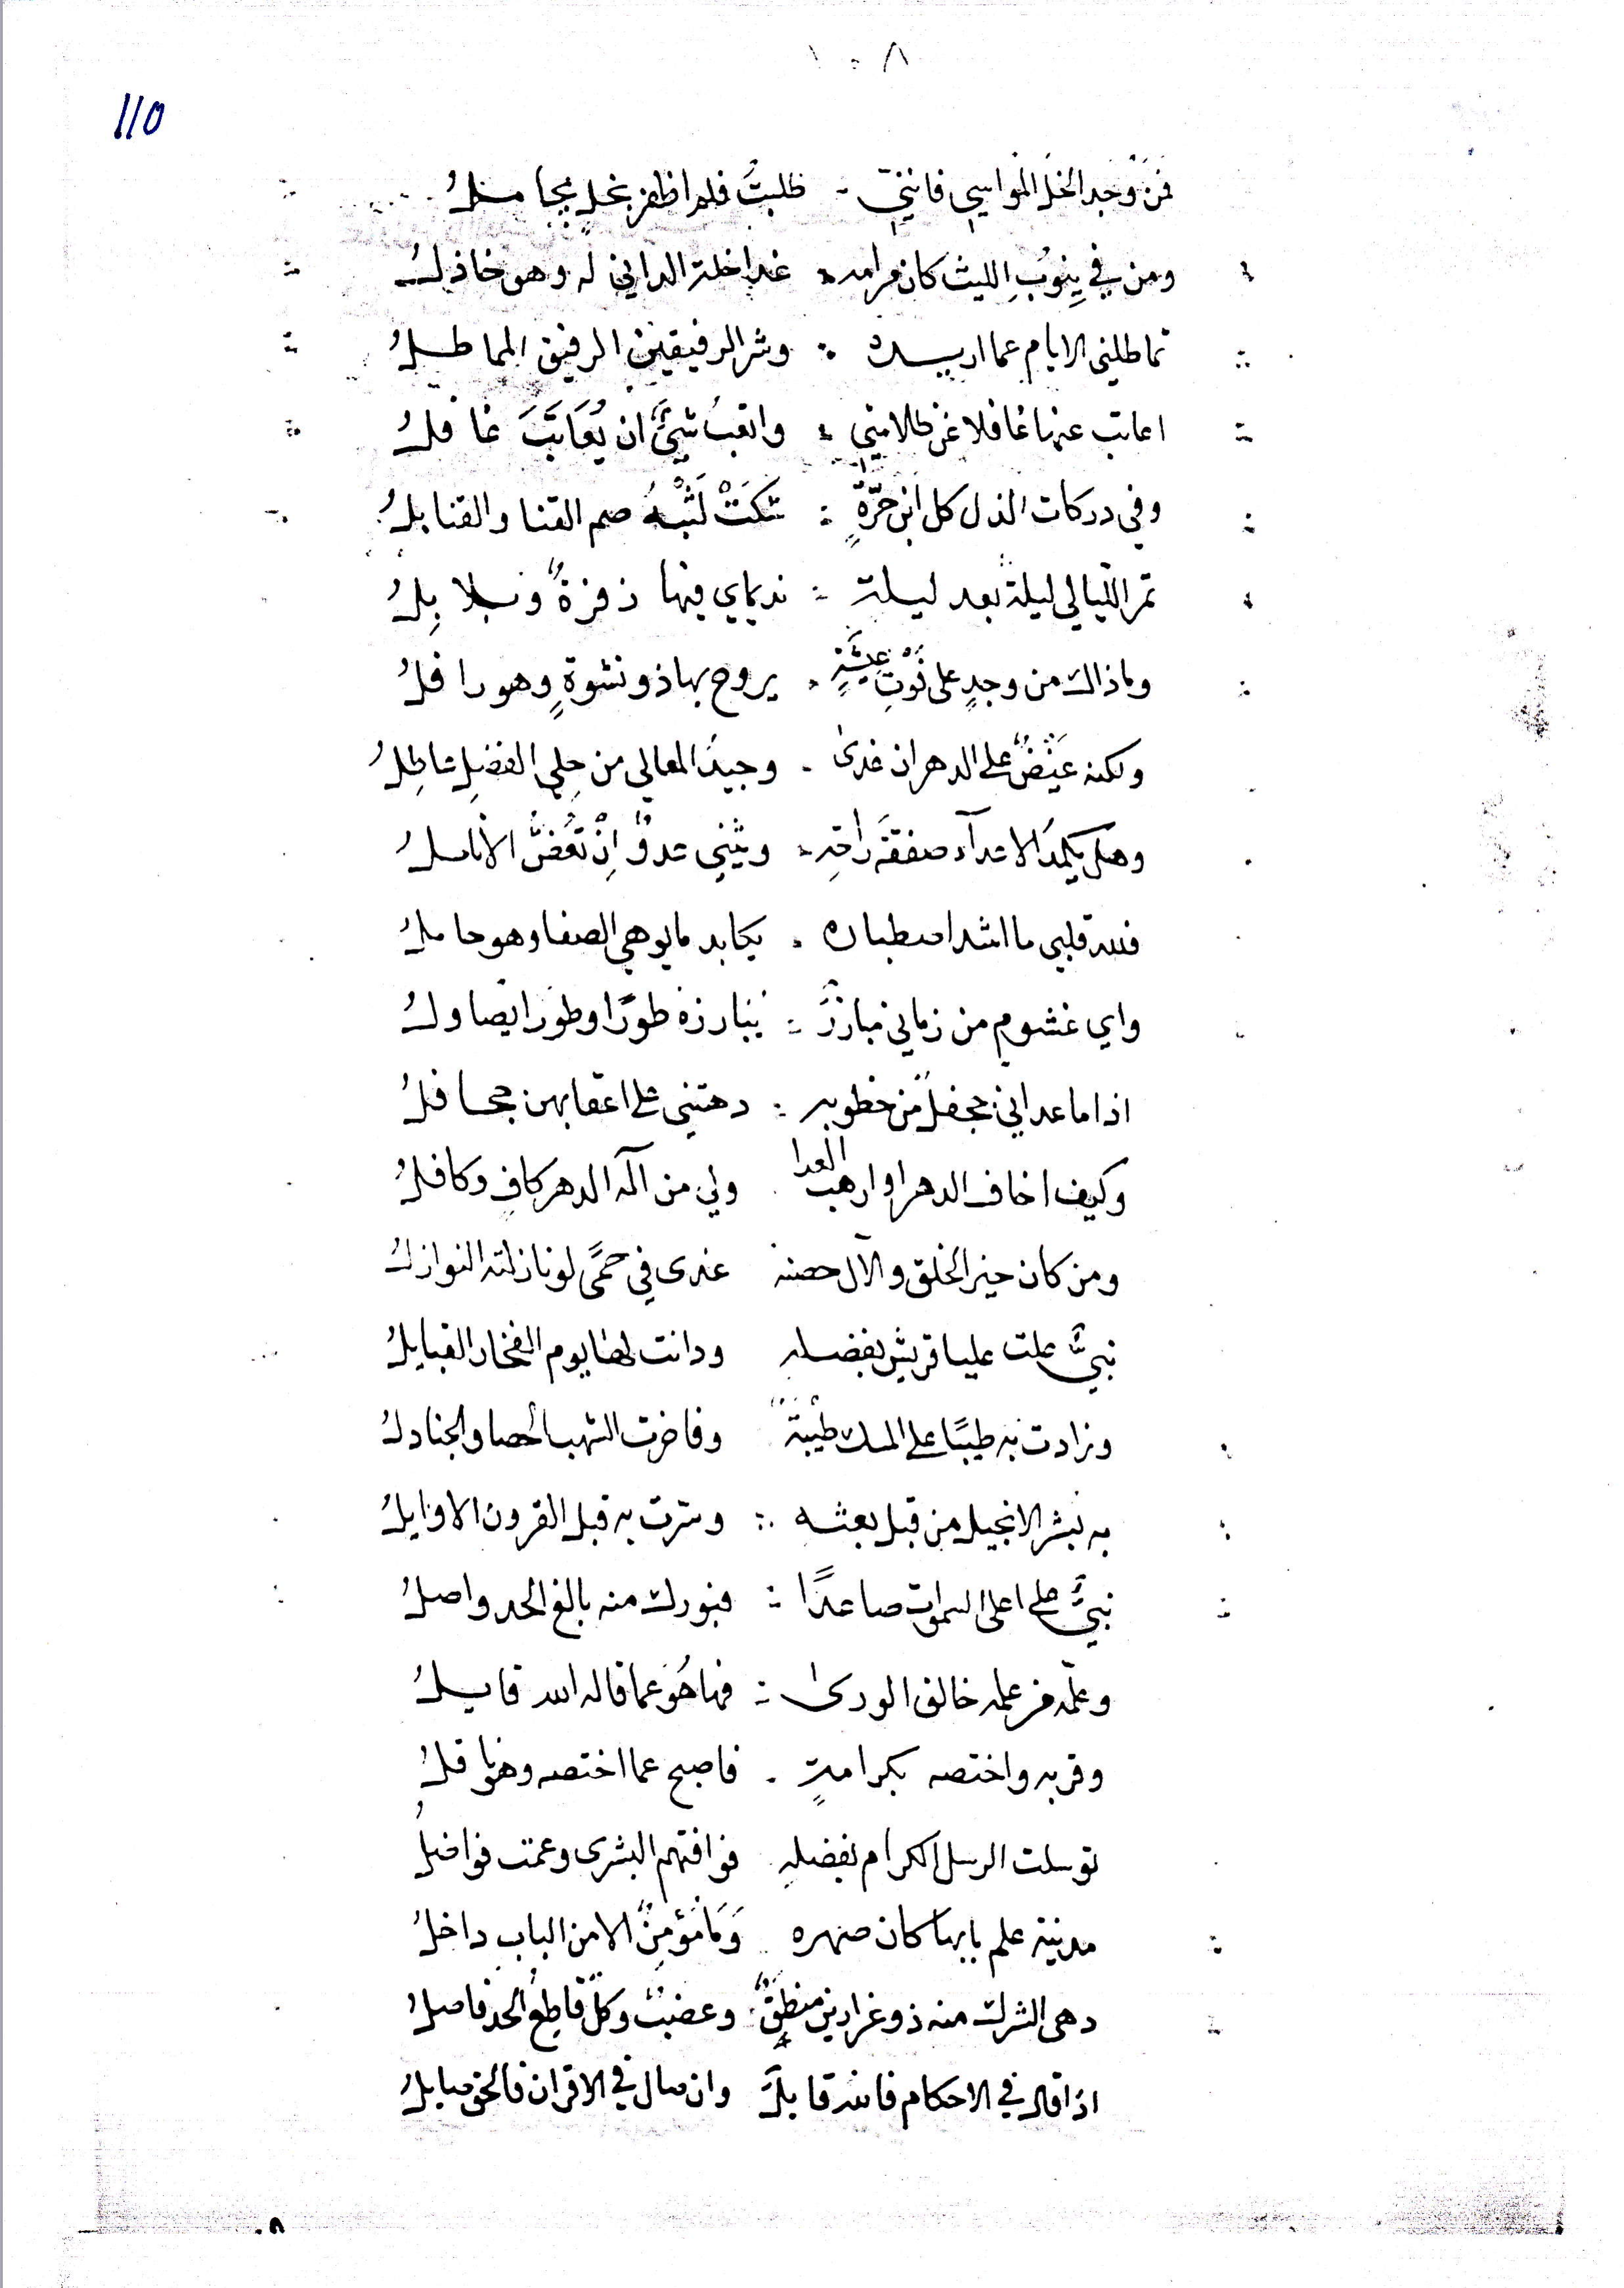 ١٠٨
110
فمَنْ وَجد الخلَ المُواسيِ فاننيِ طلبتُ فلم اظفر بخلٍ
ومن في يِنوُبِ الليث كان مرامه غدا خله الداني له وهو خاذلُ
تماطلني الايام عما اريده وشر الرفيقين الرفيق المماطلُ
اعاتب عنها غافلا عن ظلامتي واتعبُ شيئٍ ان يُعَاتَبَ غافلُ
وفي دركات الذل كل ابن حُرّةٍ شكَتْ صم القنا والقنابلُ
تمر الليالي ليلةً بعد ليلة نديماي فيها زفرةٌ وبلابِلُ
وما ذاك من وجدٍ على فَوْتِ عِيْشَةٍ يروح بها ذو نشوةٍ وهو رافلُ
ولكنه على الدهر ان غدىٰ وجيدُ المعالى من حِلي الفضلِ عاطِلُ
وهل يكمدُ الاعدآء صفقةُ راحةِ ويثني عدوٌ اِنْ تُعَضُّ الأناملُ
فلله قلبي ما اشد اصطباره يكابد ما يوهي الصفا وهو حاملُ
واي غشوم من زماني مبارزٌ يُبارزهُ طورًا وطورا يُصاولُ
اذا ما عداني جحفلٌ من خطوبه دهتني على اعقابهن جحافلُ
وكيف اخاف الدهر او ارهب العدا ولي من اله الدهر كافٍ وكافلُ
ومن كان خير الخلق والآل حصنه غدى في حمًى لو نازلته النوازلُ
نبيٌّ علت عليا قريش بفضله ودانت لها يوم الفخار القبايلُ
وزادت به طيبًا على المسك طَيْبَةٌ وفاخرت الشهب الحصا والجنادلُ
به بُشر الانجيل من قبل بعثه وسرت به قبل القرون الاوايلُ
نبيٌّ على اعلى السموات صاعدًا فبورك منه بالغ الحد واصلُ
وعلّمه من علمه خالق الورىٰ فما هُوَ عما قاله الله قايلُ
وقربه واختصه بكرامةٍ فاصبح عما اختصه وهو ناقلُ
توسلت الرسل الكرام بفضلهِ فوافتهم البشرى وعمت فواضلُ
مدينة علم بابها كان صهره وَمَا مُؤمِنٌ الا من البابِ داخلُ
دهى الشرك منه ذو غرارين منطِقٌ وعضبٌ وكلٌ قاطِعُ الحد فاصلُ
اذا قال في الاحكام فالله قايلٌ وان صال في الاقران فالحق صايلُ